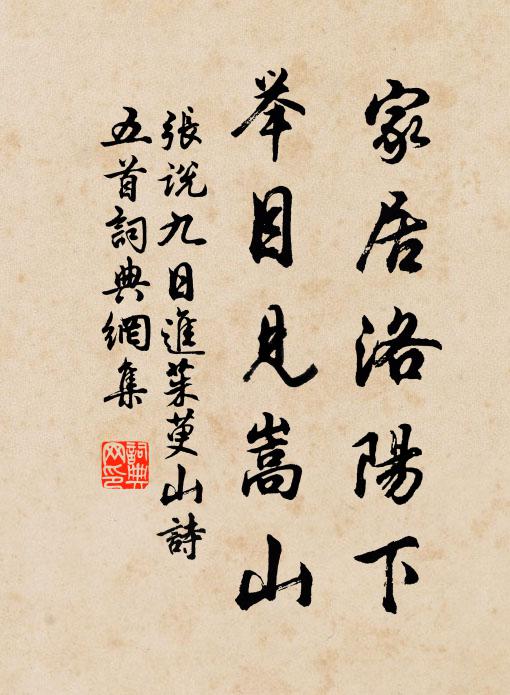 家居洛陽下
举目見嵩山
張说九日進茱萸山詩
五首詞典網集
詞典网印